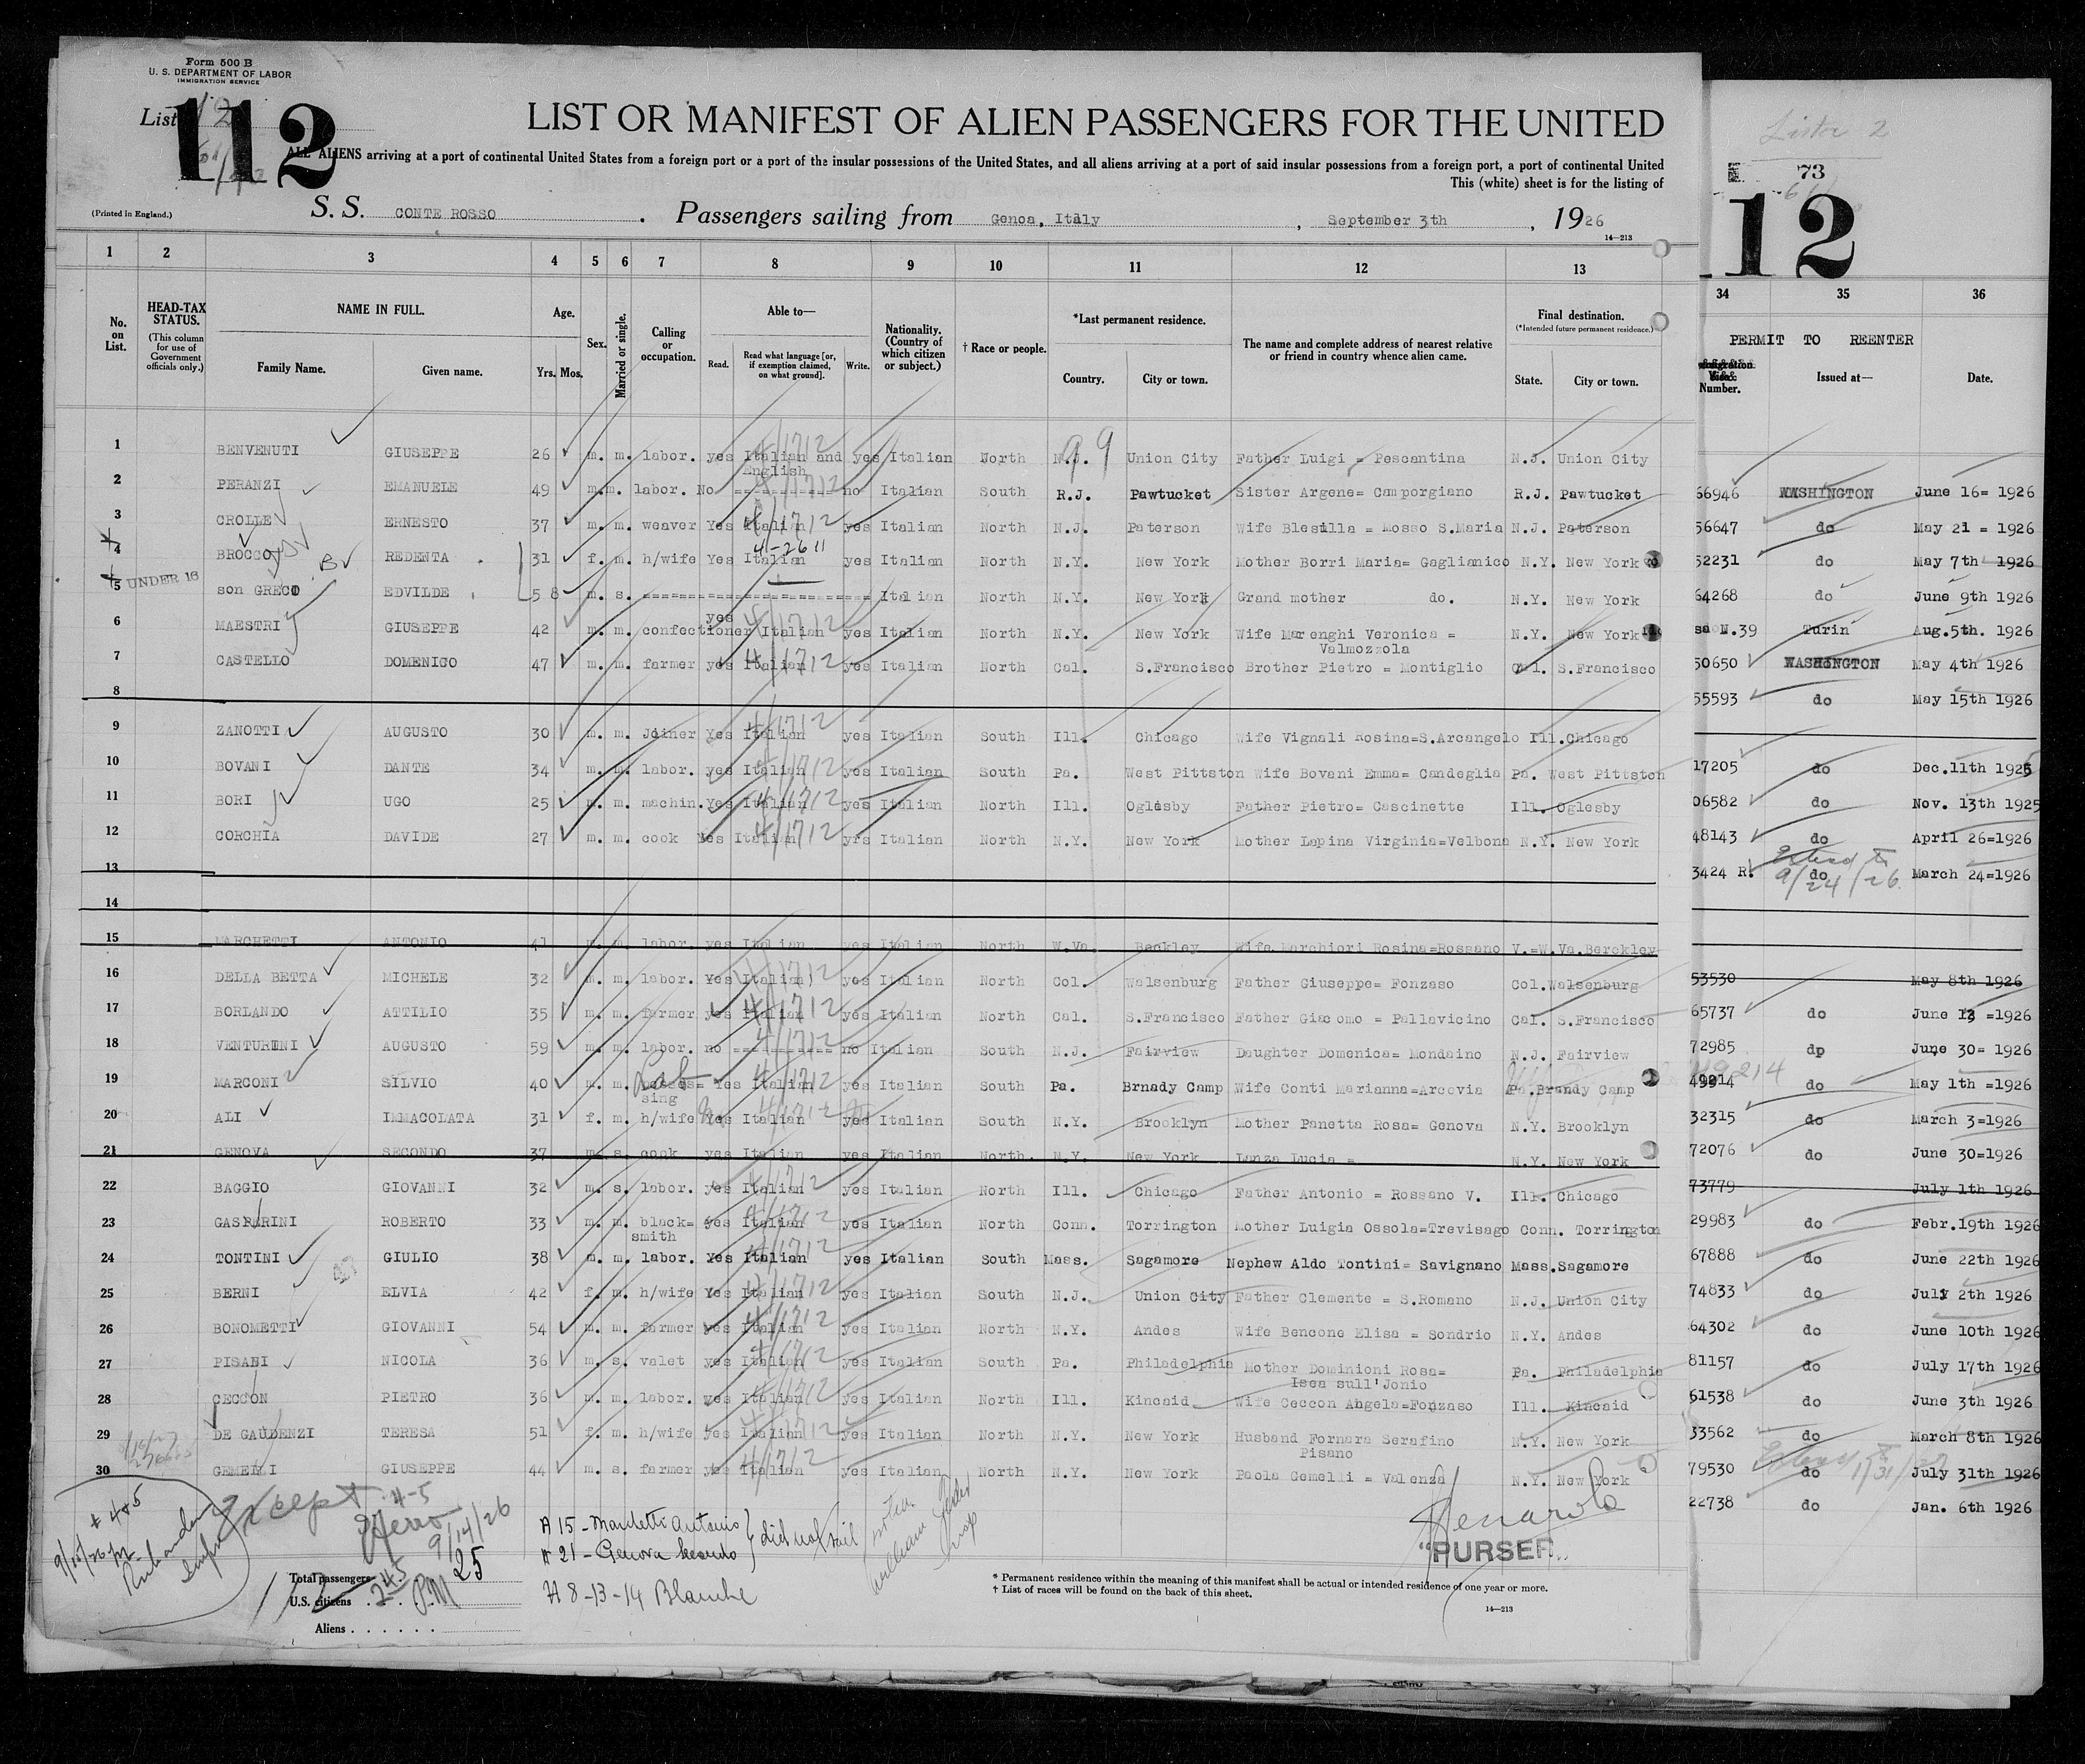 Form 500 B
U. S. DEPARTMENT OF LABOR
IMMIGRATION SERVICE
List 12
112
LIST OR MANIFEST OF ALIEN PASSENGERS FOR THE UNITED
ALL ALIENS arriving at a port of continental United States from a foreign port or a port of the insular possessions of the United States, and all aliens arriving at a port of said insular possessions from a foreign port, a port of continental United
This (white) sheet is for the listing of
(Printed in England.)
S. S. CONTE ROSSO . Passengers sailing from Genoa, Italy , September 3th , 1926
14—213
1 2 3 4 5 6 7 8 9 10 11 12 13
No. on List.
HEAD-TAX STATUS.
(This column for use of Government officials only.)
NAME IN FULL.
Family Name. Given name.
Age.
Yrs. Mos.
Sex.
Married or single.
Calling or occupation.
Able to—
Read. Read what language [or, if exemption claimed, on what ground]. Write.
Nationality. (Country of which citizen or subject.)
† Race or people.
*Last permanent residence.
Country. City or town.
The name and complete address of nearest relative or friend in country whence alien came.
Final destination.
(*Intended future permanent residence.)
State. City or town.
1 BENVENUTI GIUSEPPE 26 m. m. labor. yes Italian and English yes Italian North N.J. Union City Father Luigi = Pescantina N.J. Union City
2 PERANZI EMANUELE 49 m. m. labor. No ========== no Italian South R.J. Pawtucket Sister Argene= Camporgiano R.J. Pawtucket
3 CROLLE ERNESTO 37 m. m. weaver Yes Italian yes Italian North N.J. Paterson Wife Blesilla = Mosso S.Maria N.J. Paterson
4 BROCCO REDENTA 31 f. m. h/wife Yes Italian yes Italian North N.Y. New York Mother Borri Maria= Gaglianico N.Y. New York
5 UNDER 16 son GRECO EDVILDE 5 8 m. s. ==================== Italian North N.Y. New York Grand mother do. N.Y. New York
6 MAESTRI GIUSEPPE 42 m. m. confectioner yes Italian yes Italian North N.Y. New York Wife Marenghi Veronica = Valmozzola N.Y. New York
7 CASTELLO DOMENICO 47 m. m. farmer yes Italian yes Italian North Cal. S.Francisco Brother Pietro = Montiglio Cal. S.Francisco
8
9 ZANOTTI AUGUSTO 30 m. m. Joiner Yes Italian yes Italian South Ill. Chicago Wife Vignali Rosina=S.Arcangelo Ill. Chicago
10 BOVANI DANTE 34 m. m. labor. yes Italian yes Italian South Pa. West Pittston Wife Bovani Emma= Candeglia Pa. West Pittston
11 BORI UGO 25 m. m. machin. Yes Italian yes Italian North Ill. Oglesby Father Pietro= Cascinette Ill. Oglesby
12 CORCHIA DAVIDE 27 m. m. cook Yes Italian yrs Italian North N.Y. New York Mother Lapina Virginia=Velbona N.Y. New York
13
14
15 MARCHETTI ANTONIO 41 m. m. labor. yes Italian yes Italian North W.Va. Beckley Wife Marchiori Rosina=Rossano V.= W.Va. Berckley
16 DELLA BETTA MICHELE 32 m. m. labor. Yes Italian yes Italian North Col. Walsenburg Father Giuseppe= Fonzaso Col. Walsenburg
17 BORLANDO ATTILIO 35 m. m. farmer yes Italian yes Italian North Cal. S.Francisco Father Giacomo = Pallavicino Cal. S.Francisco
18 VENTURINI AUGUSTO 59 m. m. labor. no =========== no Italian South N.J. Fairview Daughter Domenica= Mondaino N.J. Fairview
19 MARCONI SILVIO 40 m. m. Lab sing Yes Italian yes Italian South Pa. Brnady Camp Wife Conti Marianna=Arcevia Pa. Brandy Camp
20 ALI IMMACOLATA 31 f. m. h/wife Yes Italian yes Italian South N.Y. Brooklyn Mother Panetta Rosa= Genova N.Y. Brooklyn
21 GENOVA SECONDO 37 m. s. cook yes Italian yes Italian North. N.Y. New York Lanza Lucia = N.Y. New York
22 BAGGIO GIOVANNI 32 m. s. labor. yes Italian yes Italian North Ill. Chicago Father Antonio = Rossano V. Ill. Chicago
23 GASPARINI ROBERTO 33 m. m. black=smith yes Italian yes Italian North Conn. Torrington Mother Luigia Ossola=Trevisago Conn. Torrington
24 TONTINI GIULIO 38 m. m. labor. Yes Italian yes Italian South Mass. Sagamore Nephew Aldo Tontini= Savignano Mass. Sagamore
25 BERNI ELVIA 42 f. m. h/wife Yes Italian yes Italian South N.J. Union City Father Clemente = S.Romano N.J. Union City
26 BONOMETTI GIOVANNI 54 m. m. farmer yes Italian yes Italian North N.Y. Andes Wife Bencone Elisa = Sondrio N.Y. Andes
27 PISANI NICOLA 36 m. s. valet yes Italian yes Italian South Pa. Philadelphia Mother Dominioni Rosa= Isca sull'Jonio Pa. Philadelphia
28 CECCON PIETRO 36 m. m. labor. yes Italian yes Italian North Ill. Kincaid Wife Ceccon Angela=Fonzaso Ill. Kincaid
29 DE GAUDENZI TERESA 51 f. m. h/wife yes Italian yes Italian North N.Y. New York Husband Fornara Serafino Pisano N.Y. New York
30 GEMELLI GIUSEPPE 44 m. s. farmer yes Italian yes Italian North N.Y. New York Paola Gemelli = Valenza N.Y. New York
Except #4-5
9/14/26
# 4&5
# 15 - Marchetti Antonio
# 21 - Genova Secondo
did not sail
# 8-13-14 Blanche
Total passengers 25
U.S. citizens
Aliens
112
245 PM
"PURSER"
* Permanent residence within the meaning of this manifest shall be actual or intended residence of one year or more.
† List of races will be found on the back of this sheet.
14—213
Lista 2
73
112
34 35 36
PERMIT TO REENTER
Number. Issued at— Date.
66946 WASHINGTON June 16= 1926
56647 do May 21 = 1926
52231 do May 7th 1926
64268 do June 9th 1926
N.39 Turin Aug.5th. 1926
50650 WASHINGTON May 4th 1926
55593 do May 15th 1926
17205 do Dec.11th 1925
06582 do Nov. 13th 1925
48143 do April 26=1926
3424 R. do March 24=1926
9/24/26
53530 May 8th 1926
65737 do June 13 =1926
72985 dp June 30= 1926
49214 do May 1th =1926
32315 do March 3=1926
72076 do June 30=1926
73779 July 1th 1926
29983 do Febr.19th 1926
67888 do June 22th 1926
74833 do July 2th 1926
64302 do June 10th 1926
81157 do July 17th 1926
61538 do June 3th 1926
33562 do March 8th 1926
79530 do July 31th 1926
22738 do Jan. 6th 1926